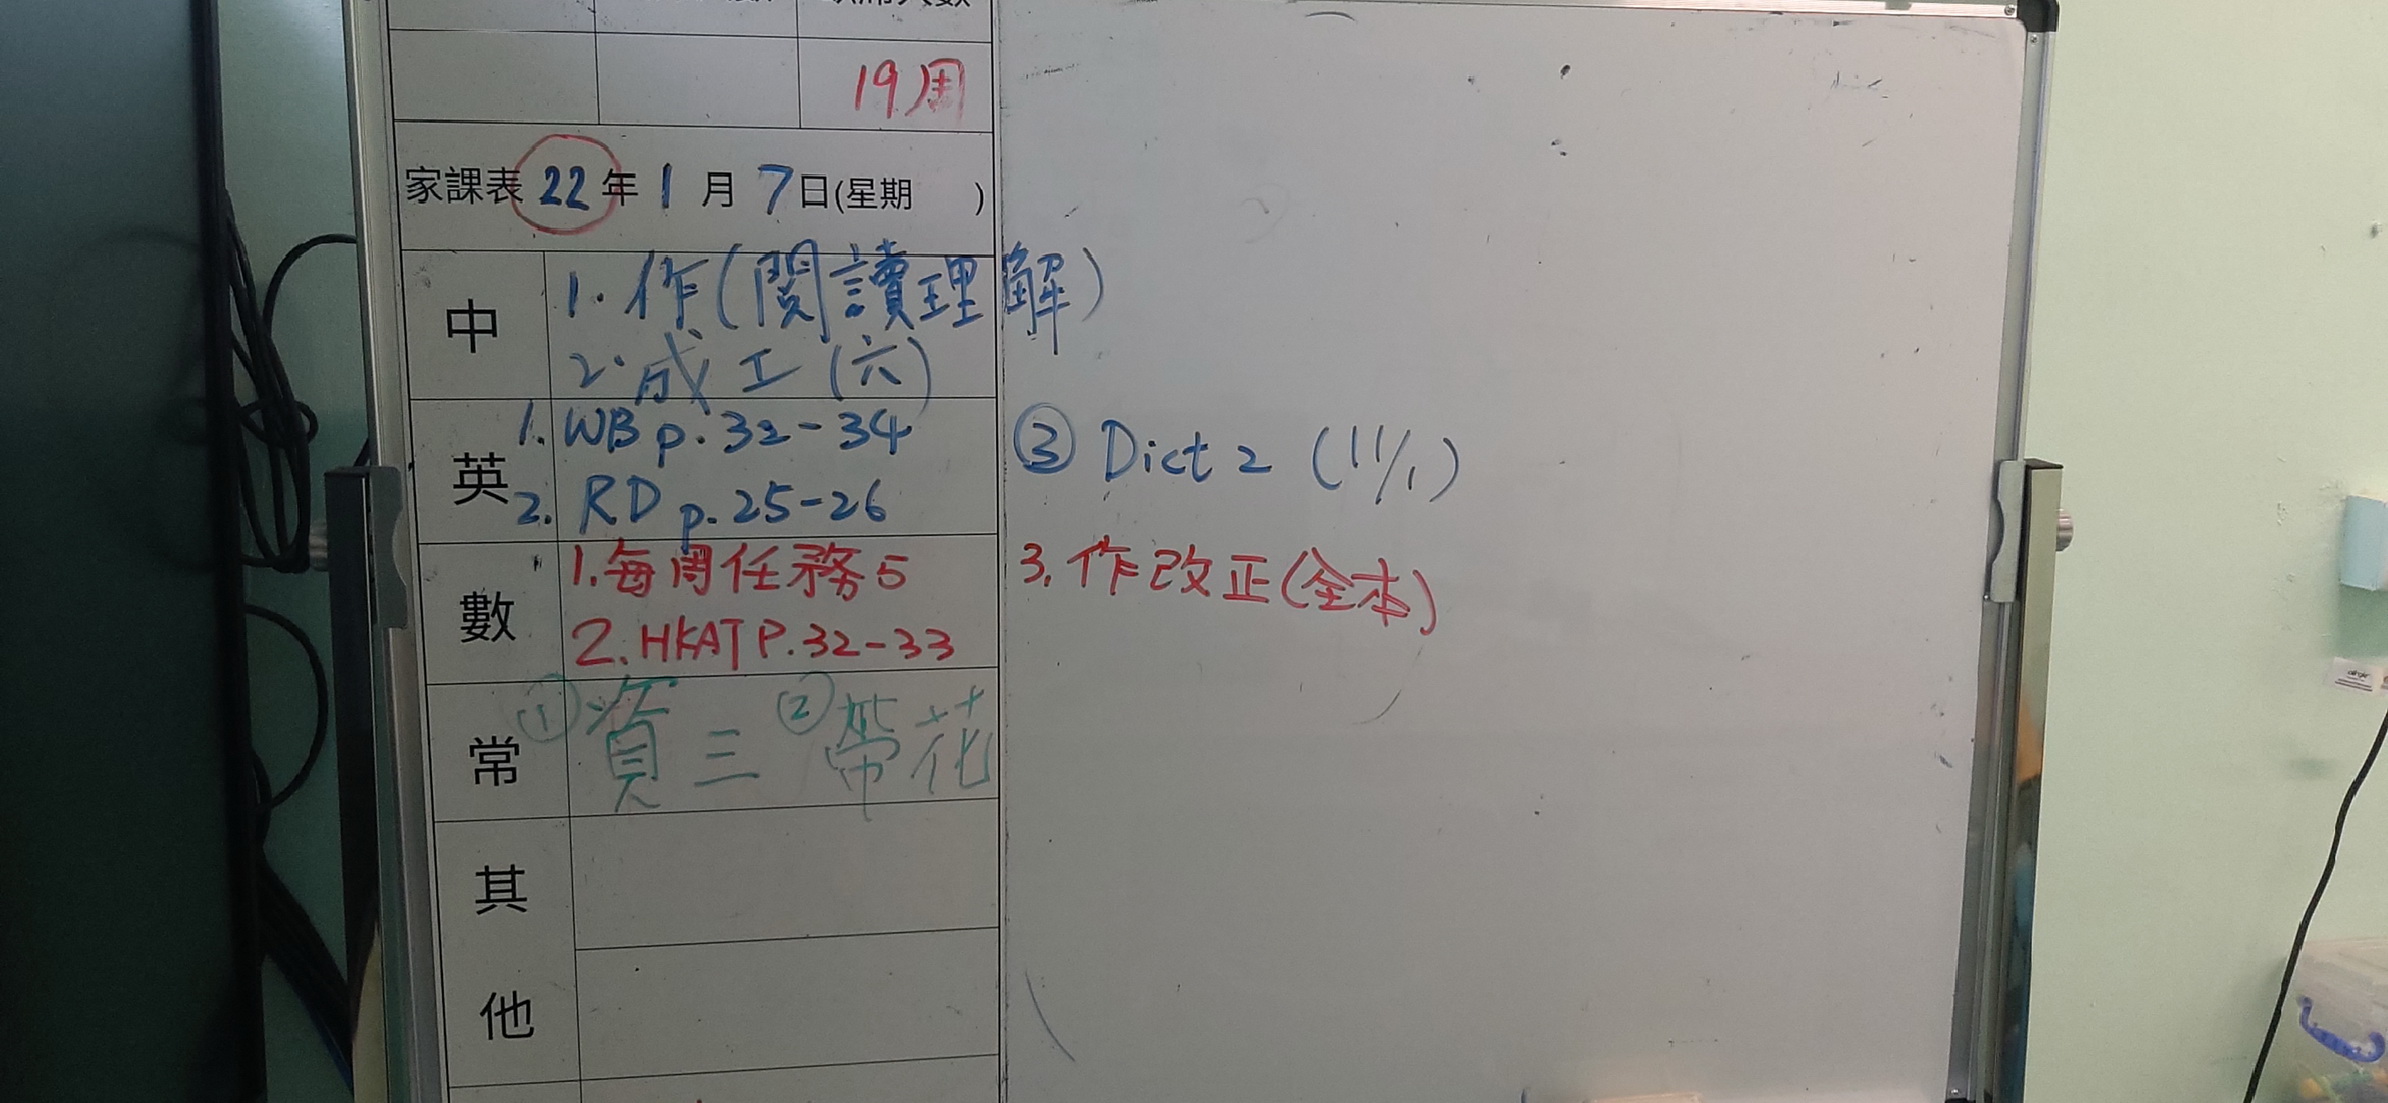 19周
家課表 22年 1月 7日(星期 )
中
1. 作(閱讀理解)
2. 成工(六)
英
1. WB p.32-34
2. RD p.25-26
③ Dict 2 (11/1)
數
1. 每周任務5
2. HKAT P.32-33
3. 作改正(全本)
常
① 資三 ② 帶花
其他